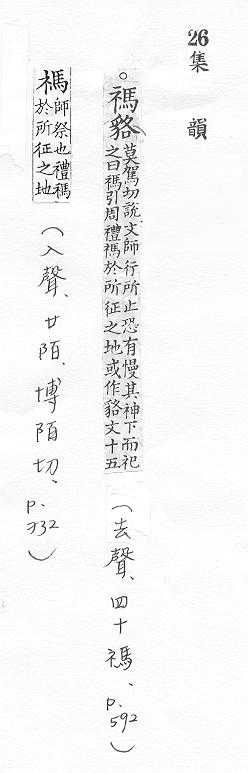 26
集韻
。禡貉莫駕切說文師行所止恐有慢其神下而祀之曰禡引周禮禡於所征之地或作貉文十五（去聲、四十禡、p.592）
禡師祭也禮禡於所征之地（入聲、廿陌、博陌切、p.732）